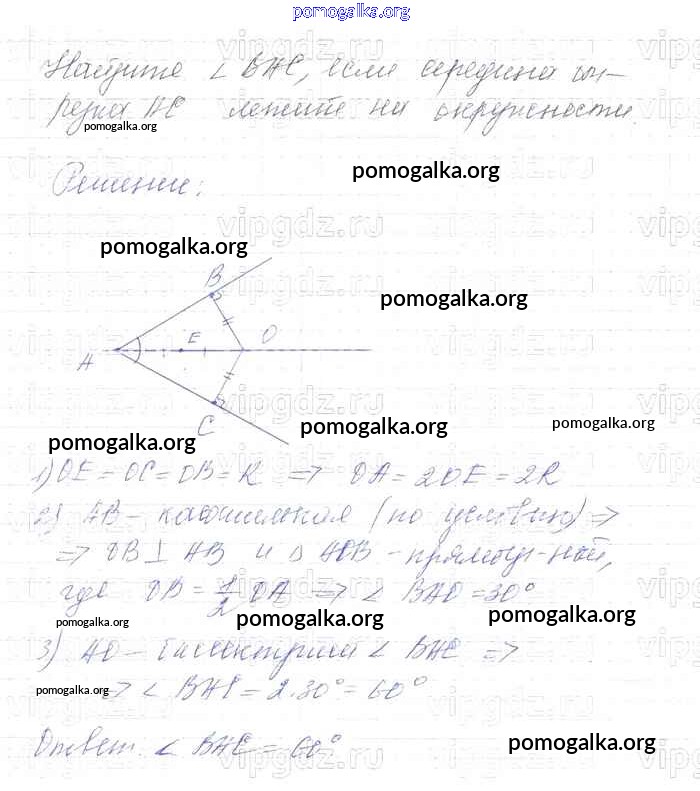 pomogalka.org
Найдите ∠ BAC, если середина от-
резка AC лежит на окружности.
pomogalka.org
pomogalka.org
Решение:
vipgdz.ru
pomogalka.org
B
pomogalka.org
A E O
C
pomogalka.org
pomogalka.org
pomogalka.org
1) OE = OC = OB = R ⇒ OA = 2OE = 2R
2) AB – касательная (по условию) ⇒
⇒ OB ⊥ AB и △ AOB – прямоуг-ный,
где OB = 1/2 OA ⇒ ∠ BAO = 30°
pomogalka.org
pomogalka.org
pomogalka.org
3) AO – биссектриса ∠ BAC ⇒
⇒ ∠ BAC = 2·30° = 60°
pomogalka.org
Ответ: ∠ BAC = 60°
pomogalka.org